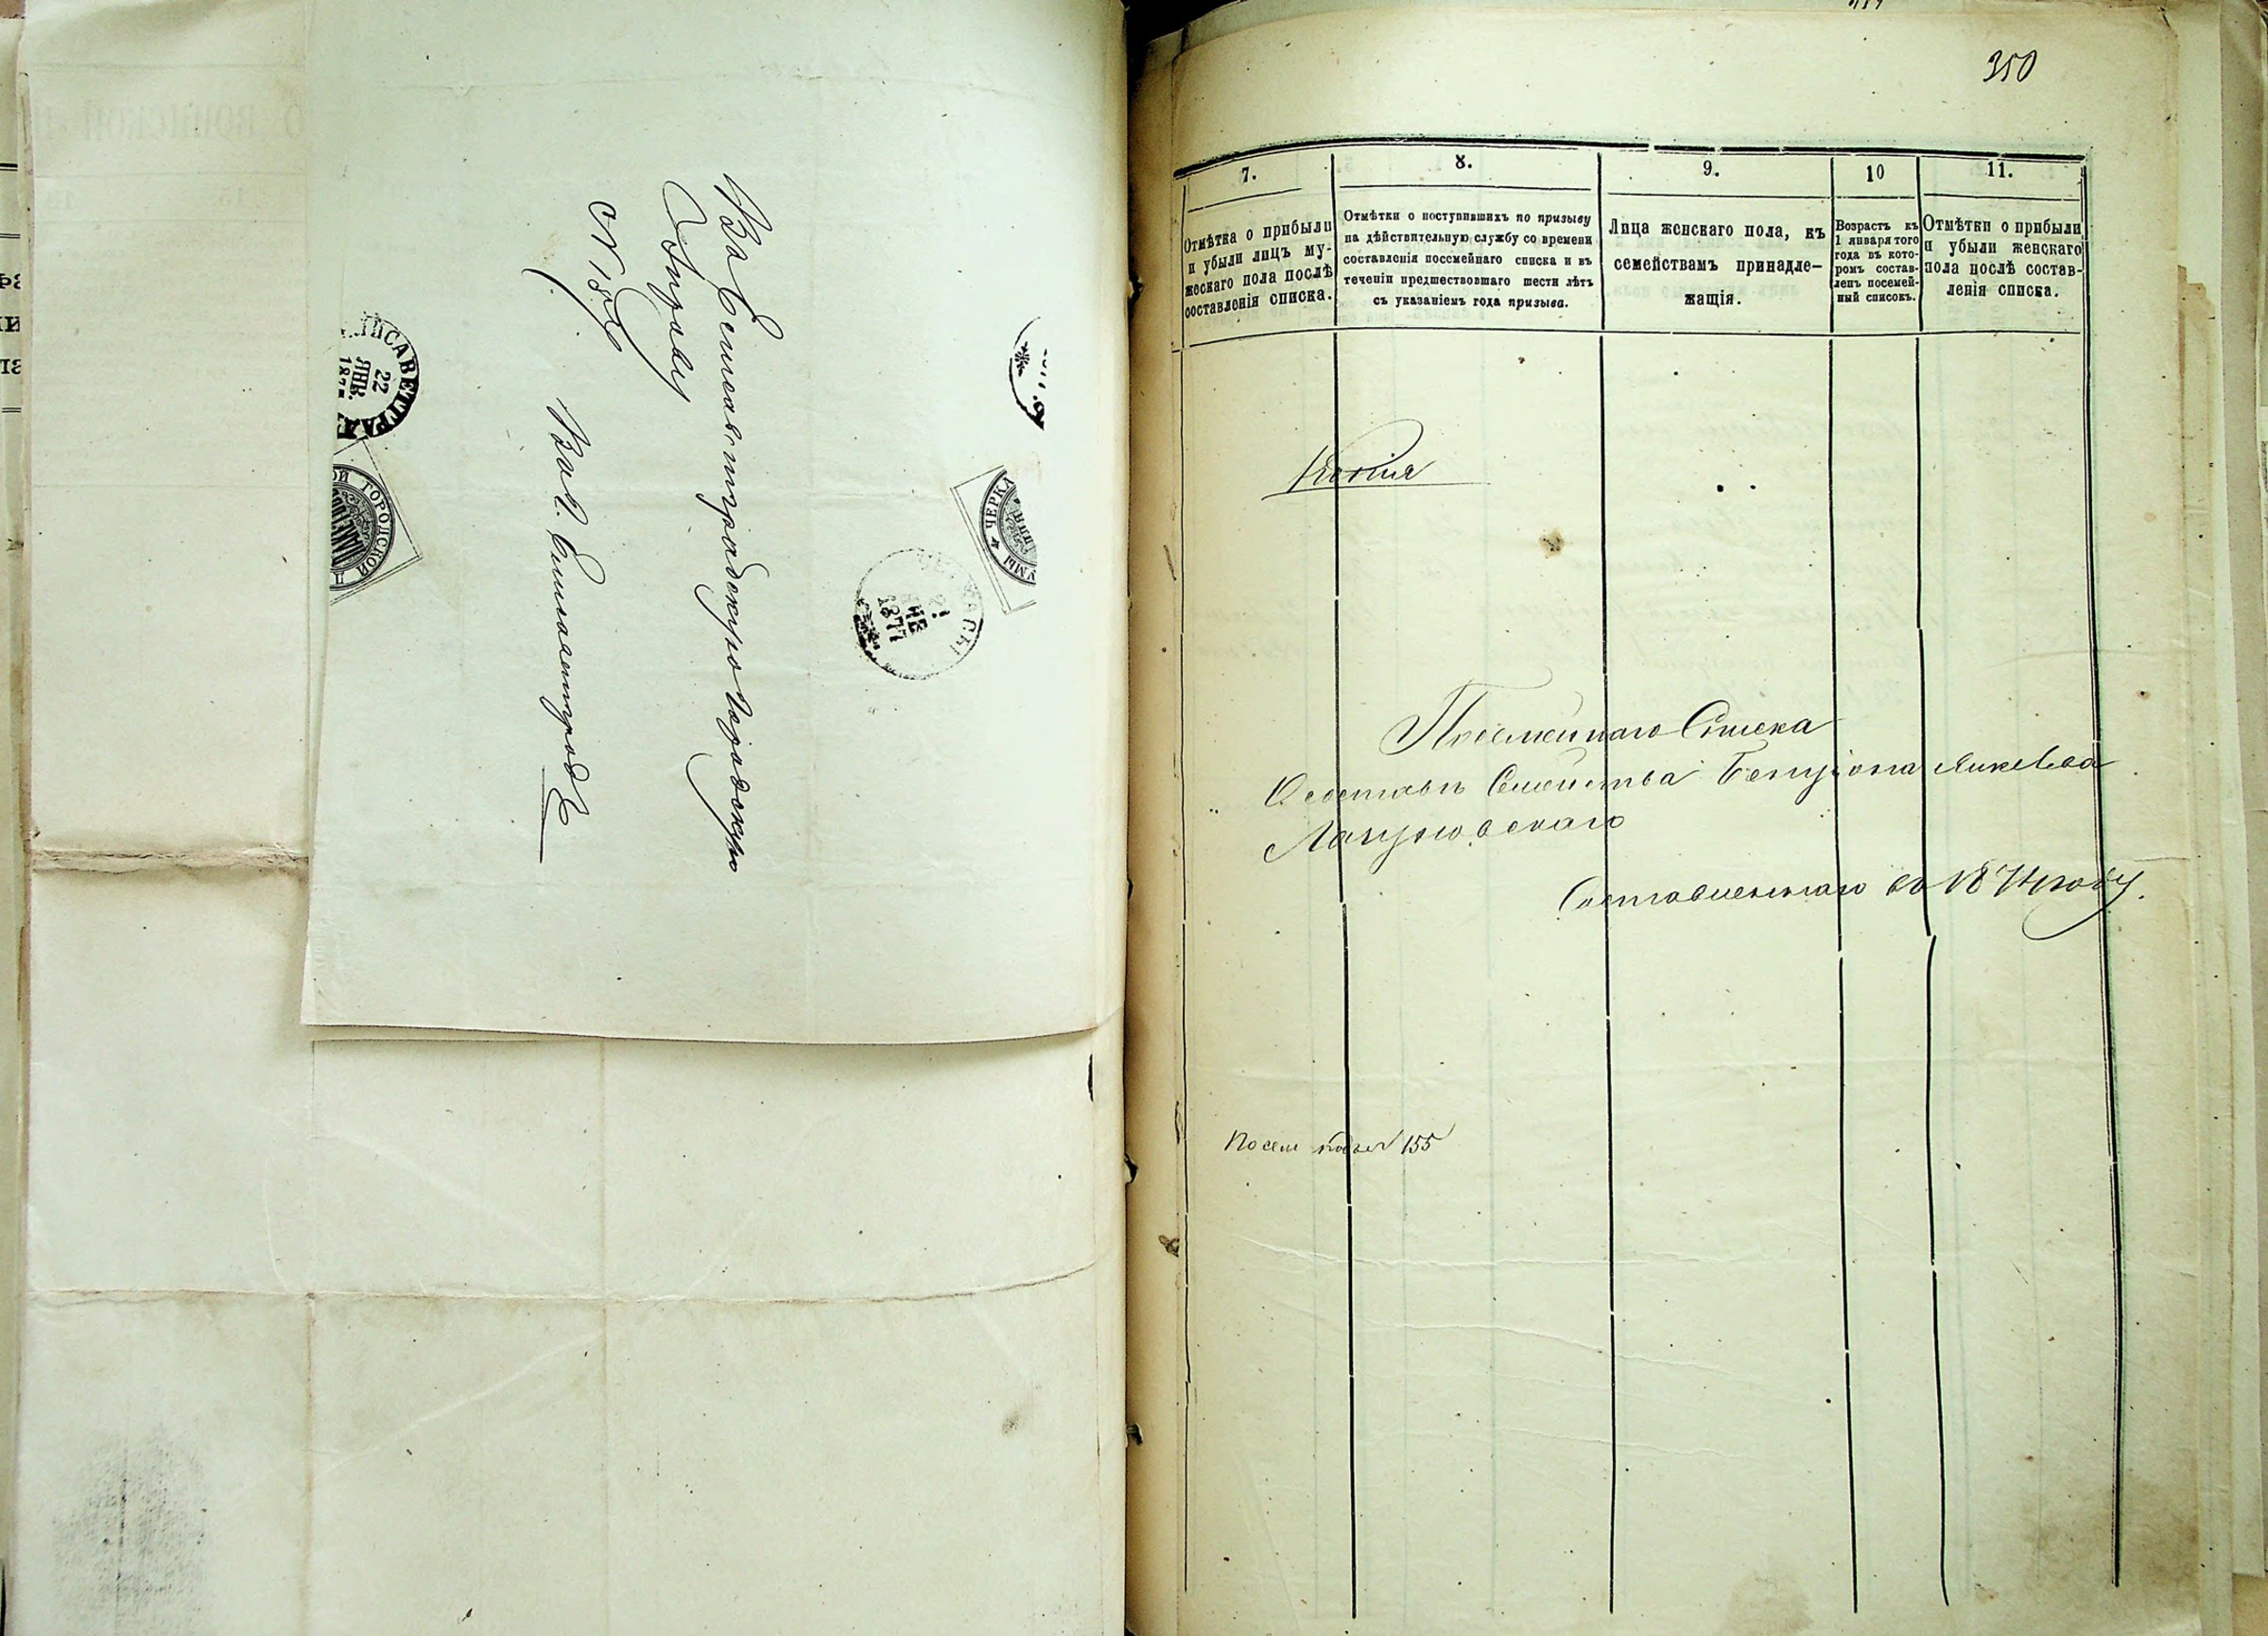 Въ Елисаветградскую Городскую
Управу
Въ г. Елисаветградѣ
ЕЛИСАВЕТГРАД
22
ЯНВ.
ОЙ ГОРОДСКОЙ
ЧЕРКА
УМЫ
1877
350
7.
8.
9.
10
11.
Отмѣтка о прибыли
и убыли лицъ му-
жескаго пола послѣ
составленія списка.
Отмѣтки о поступившихъ по призыву
на дѣйствительную службу со времени
составленія посемейнаго списка и въ
теченіи предшествовшаго шести лѣтъ
съ указаніемъ года призыва.
Лица женскаго пола, къ
семействамъ принадле-
жащія.
Возрастъ къ
1 января того
года въ кото-
ромъ состав-
ленъ посемей-
ный списокъ.
Отмѣтки о прибыли
и убыли женскаго
пола послѣ состав-
ленія списка.
Копія
Посемейнаго Списка
О составѣ Семейства Бенціона Янкелева
Составленнаго въ 1874 году.
155